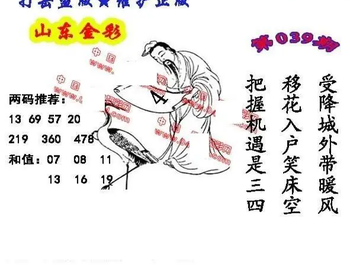 打击盗版 维护正版
山东金彩
第039期
两码推荐：
13 69 57 20
219 360 478
和值：07 08 11
13 16 19
4
受降城外带暖风
移花入户笑床空
把握机遇是三四